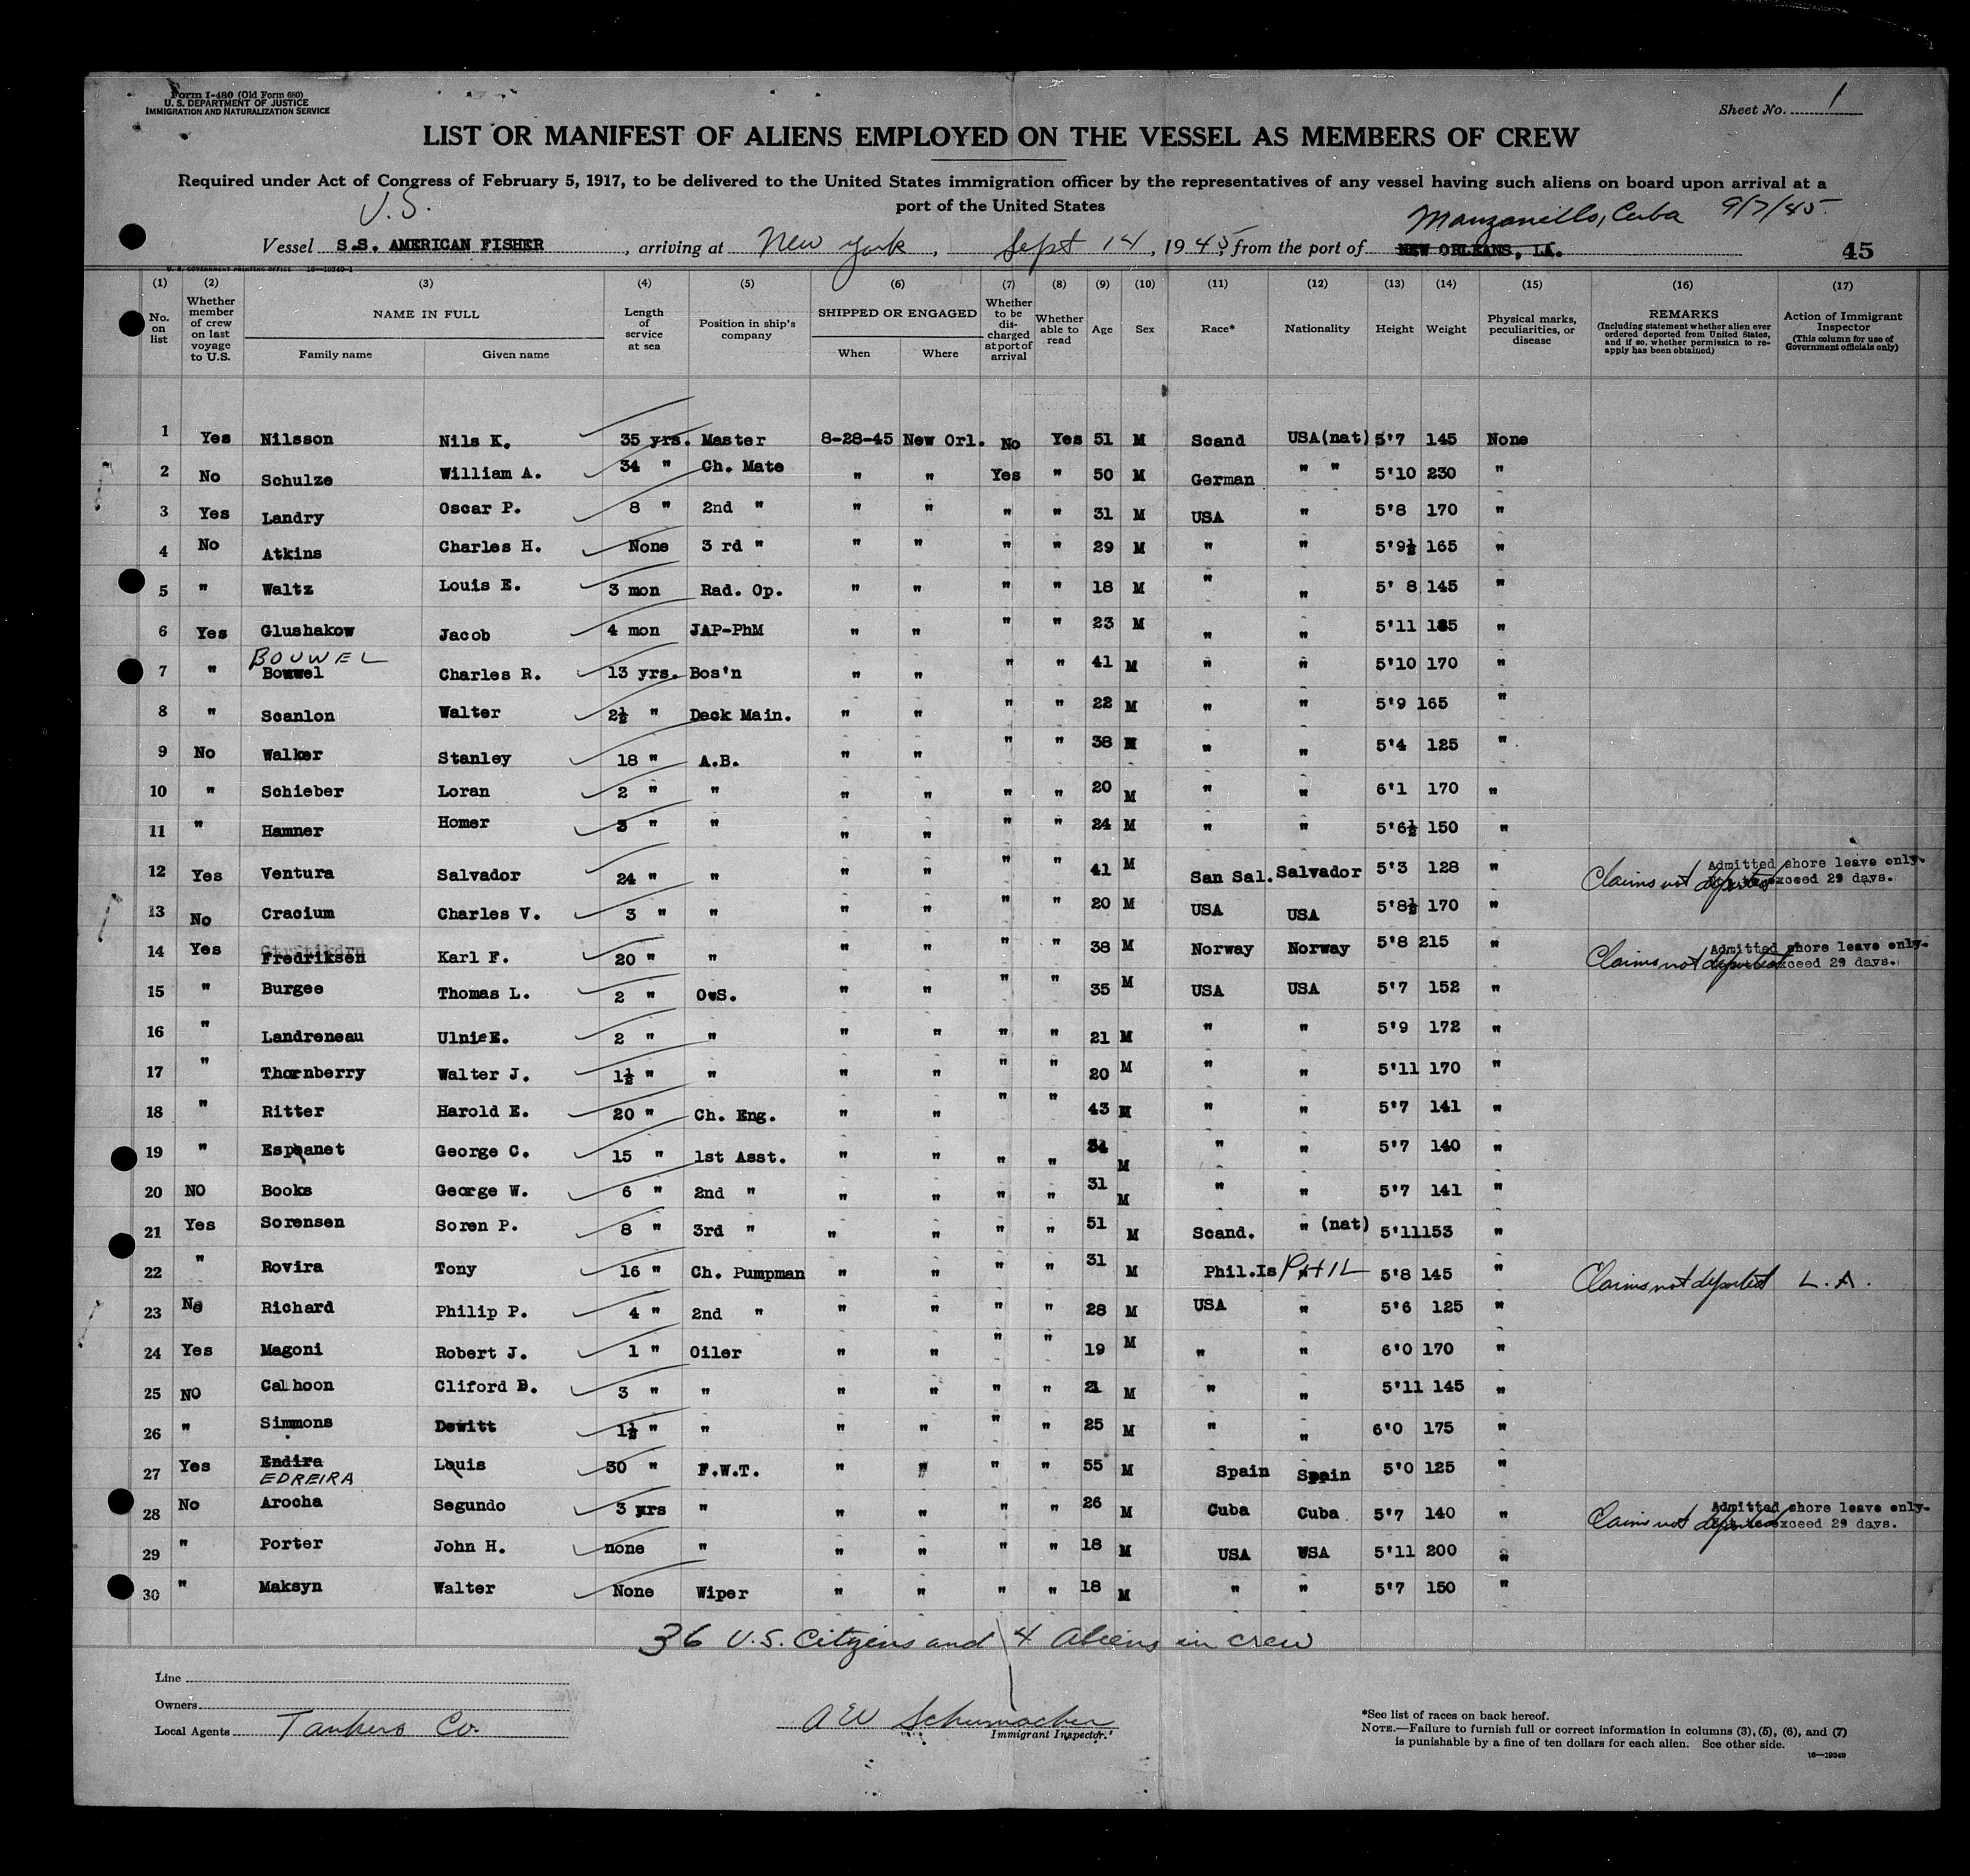 Form I-480 (Old Form 680)
U. S. DEPARTMENT OF JUSTICE
IMMIGRATION AND NATURALIZATION SERVICE
Sheet No. 1
LIST OR MANIFEST OF ALIENS EMPLOYED ON THE VESSEL AS MEMBERS OF CREW
Required under Act of Congress of February 5, 1917, to be delivered to the United States immigration officer by the representatives of any vessel having such aliens on board upon arrival at a
port of the United States
U.S. Manzanillo, Cuba 9/7/45
Vessel S.S. AMERICAN FISHER, arriving at New York, Sept 14, 1945, from the port of NEW ORLEANS, LA. 45
U. S. GOVERNMENT PRINTING OFFICE 16—19349-1
(1) (2) (3) (4) (5) (6) (7) (8) (9) (10) (11) (12) (13) (14) (15) (16) (17)
No. on list
Whether member of crew on last voyage to U.S.
NAME IN FULL
Family name Given name
Length of service at sea
Position in ship's company
SHIPPED OR ENGAGED
When Where
Whether to be discharged at port of arrival
Whether able to read
Age
Sex
Race*
Nationality
Height
Weight
Physical marks, peculiarities, or disease
REMARKS
(Including statement whether alien ever ordered deported from United States, and if so, whether permission to reapply has been obtained)
Action of Immigrant Inspector
(This column for use of Government officials only)
1 Yes Nilsson Nils K. 35 yrs. Master 8-28-45 New Orl. No Yes 51 M Scand USA(nat) 5'7 145 None
2 No Schulze William A. 34 " Ch. Mate " " Yes " 50 M German " " 5'10 230 "
3 Yes Landry Oscar P. 8 " 2nd " " " " " 31 M USA " 5'8 170 "
4 No Atkins Charles H. None 3 rd " " " " " 29 M " " 5'9½ 165 "
5 " Waltz Louis E. 3 mon Rad. Op. " " " " 18 M " " 5' 8 145 "
6 Yes Glushakow Jacob 4 mon JAP-PhM " " " " 23 M " " 5'11 185 "
BOUWEL
7 " Bouwel Charles R. 13 yrs. Bos'n " " " " 41 M " " 5'10 170 "
8 " Scanlon Walter 2½ " Deck Main. " " " " 22 M " " 5'9 165 "
9 No Walker Stanley 18 " A.B. " " " " 38 M " " 5'4 125 "
10 " Schieber Loran 2 " " " " " " 20 M " " 6'1 170 "
11 " Hamner Homer 3 " " " " " " 24 M " " 5'6½ 150 "
12 Yes Ventura Salvador 24 " " " " " " 41 M San Sal. Salvador 5'3 128 " Claims not deported Admitted shore leave only. exceed 29 days.
13 No Cracium Charles V. 3 " " " " " " 20 M USA USA 5'8½ 170 "
14 Yes Fredriksen Karl F. 20 " " " " " " 38 M Norway Norway 5'8 215 " Claims not deported Admitted shore leave only. exceed 29 days.
15 " Burgee Thomas L. 2 " O.S. " " " " 35 M USA USA 5'7 152 "
16 " Landreneau Ulnie E. 2 " " " " " " 21 M " " 5'9 172 "
17 " Thornberry Walter J. 1½ " " " " " " 20 M " " 5'11 170 "
18 " Ritter Harold E. 20 " Ch. Eng. " " " " 43 M " " 5'7 141 "
19 " Espanet George C. 15 " 1st Asst. " " " " 34 M " " 5'7 140 "
20 NO Books George W. 6 " 2nd " " " " " 31 M " " 5'7 141 "
21 Yes Sorensen Soren P. 8 " 3rd " " " " " 51 M Scand. " (nat) 5'11 153 "
22 " Rovira Tony 16 " Ch. Pumpman " " " " 31 M Phil.Is PHIL 5'8 145 " Claims not deported L. A.
23 No Richard Philip P. 4 " 2nd " " " " " 28 M USA " 5'6 125 "
24 Yes Magoni Robert J. 1 " Oiler " " " " 19 M " " 6'0 170 "
25 NO Calhoon Cliford B. 3 " " " " " " 21 M " " 5'11 145 "
26 " Simmons Dewitt 1½ " " " " " " 25 M " " 6'0 175 "
27 Yes Endira Louis 30 " F.W.T. " " " " 55 M Spain Spain 5'0 125 "
EDREIRA
28 No Arocha Segundo 3 yrs " " " " " 26 M Cuba Cuba 5'7 140 " Claims not deported Admitted shore leave only. exceed 29 days.
29 " Porter John H. none " " " " " 18 M USA USA 5'11 200 "
30 " Maksyn Walter None Wiper " " " " 18 M " " 5'7 150 "
36 U.S. Citizens and 4 Aliens in crew
Line
Owners
Local Agents Tankers Co.
A W Schumacher
Immigrant Inspector.
*See list of races on back hereof.
NOTE.—Failure to furnish full or correct information in columns (3), (5), (6), and (7)
is punishable by a fine of ten dollars for each alien. See other side.
16—19349